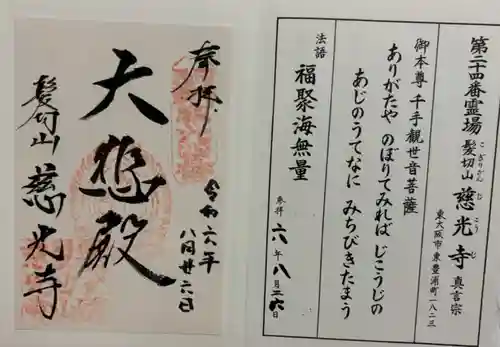 奉拝
令和六年
八月廿六日
大悲殿
髪切山 慈光寺
第二十四番霊場 髪切山 慈光寺 真言宗
こぎりさん じこうじ
東大阪市東豊浦町一八二三
御本尊 千手観世音菩薩
ありがたや のぼりてみれば じこうじの
あじのうてなに みちびきたまう
法語
福聚海無量
参拝 六年八月二六日